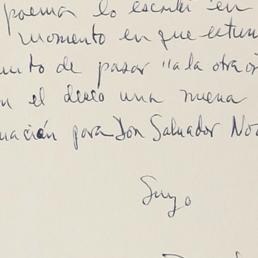 poema lo escribí en
momento en que estu
unto de pasar "a la otra o
n el deseo una nueva
uación para Don Salvador No
Suyo